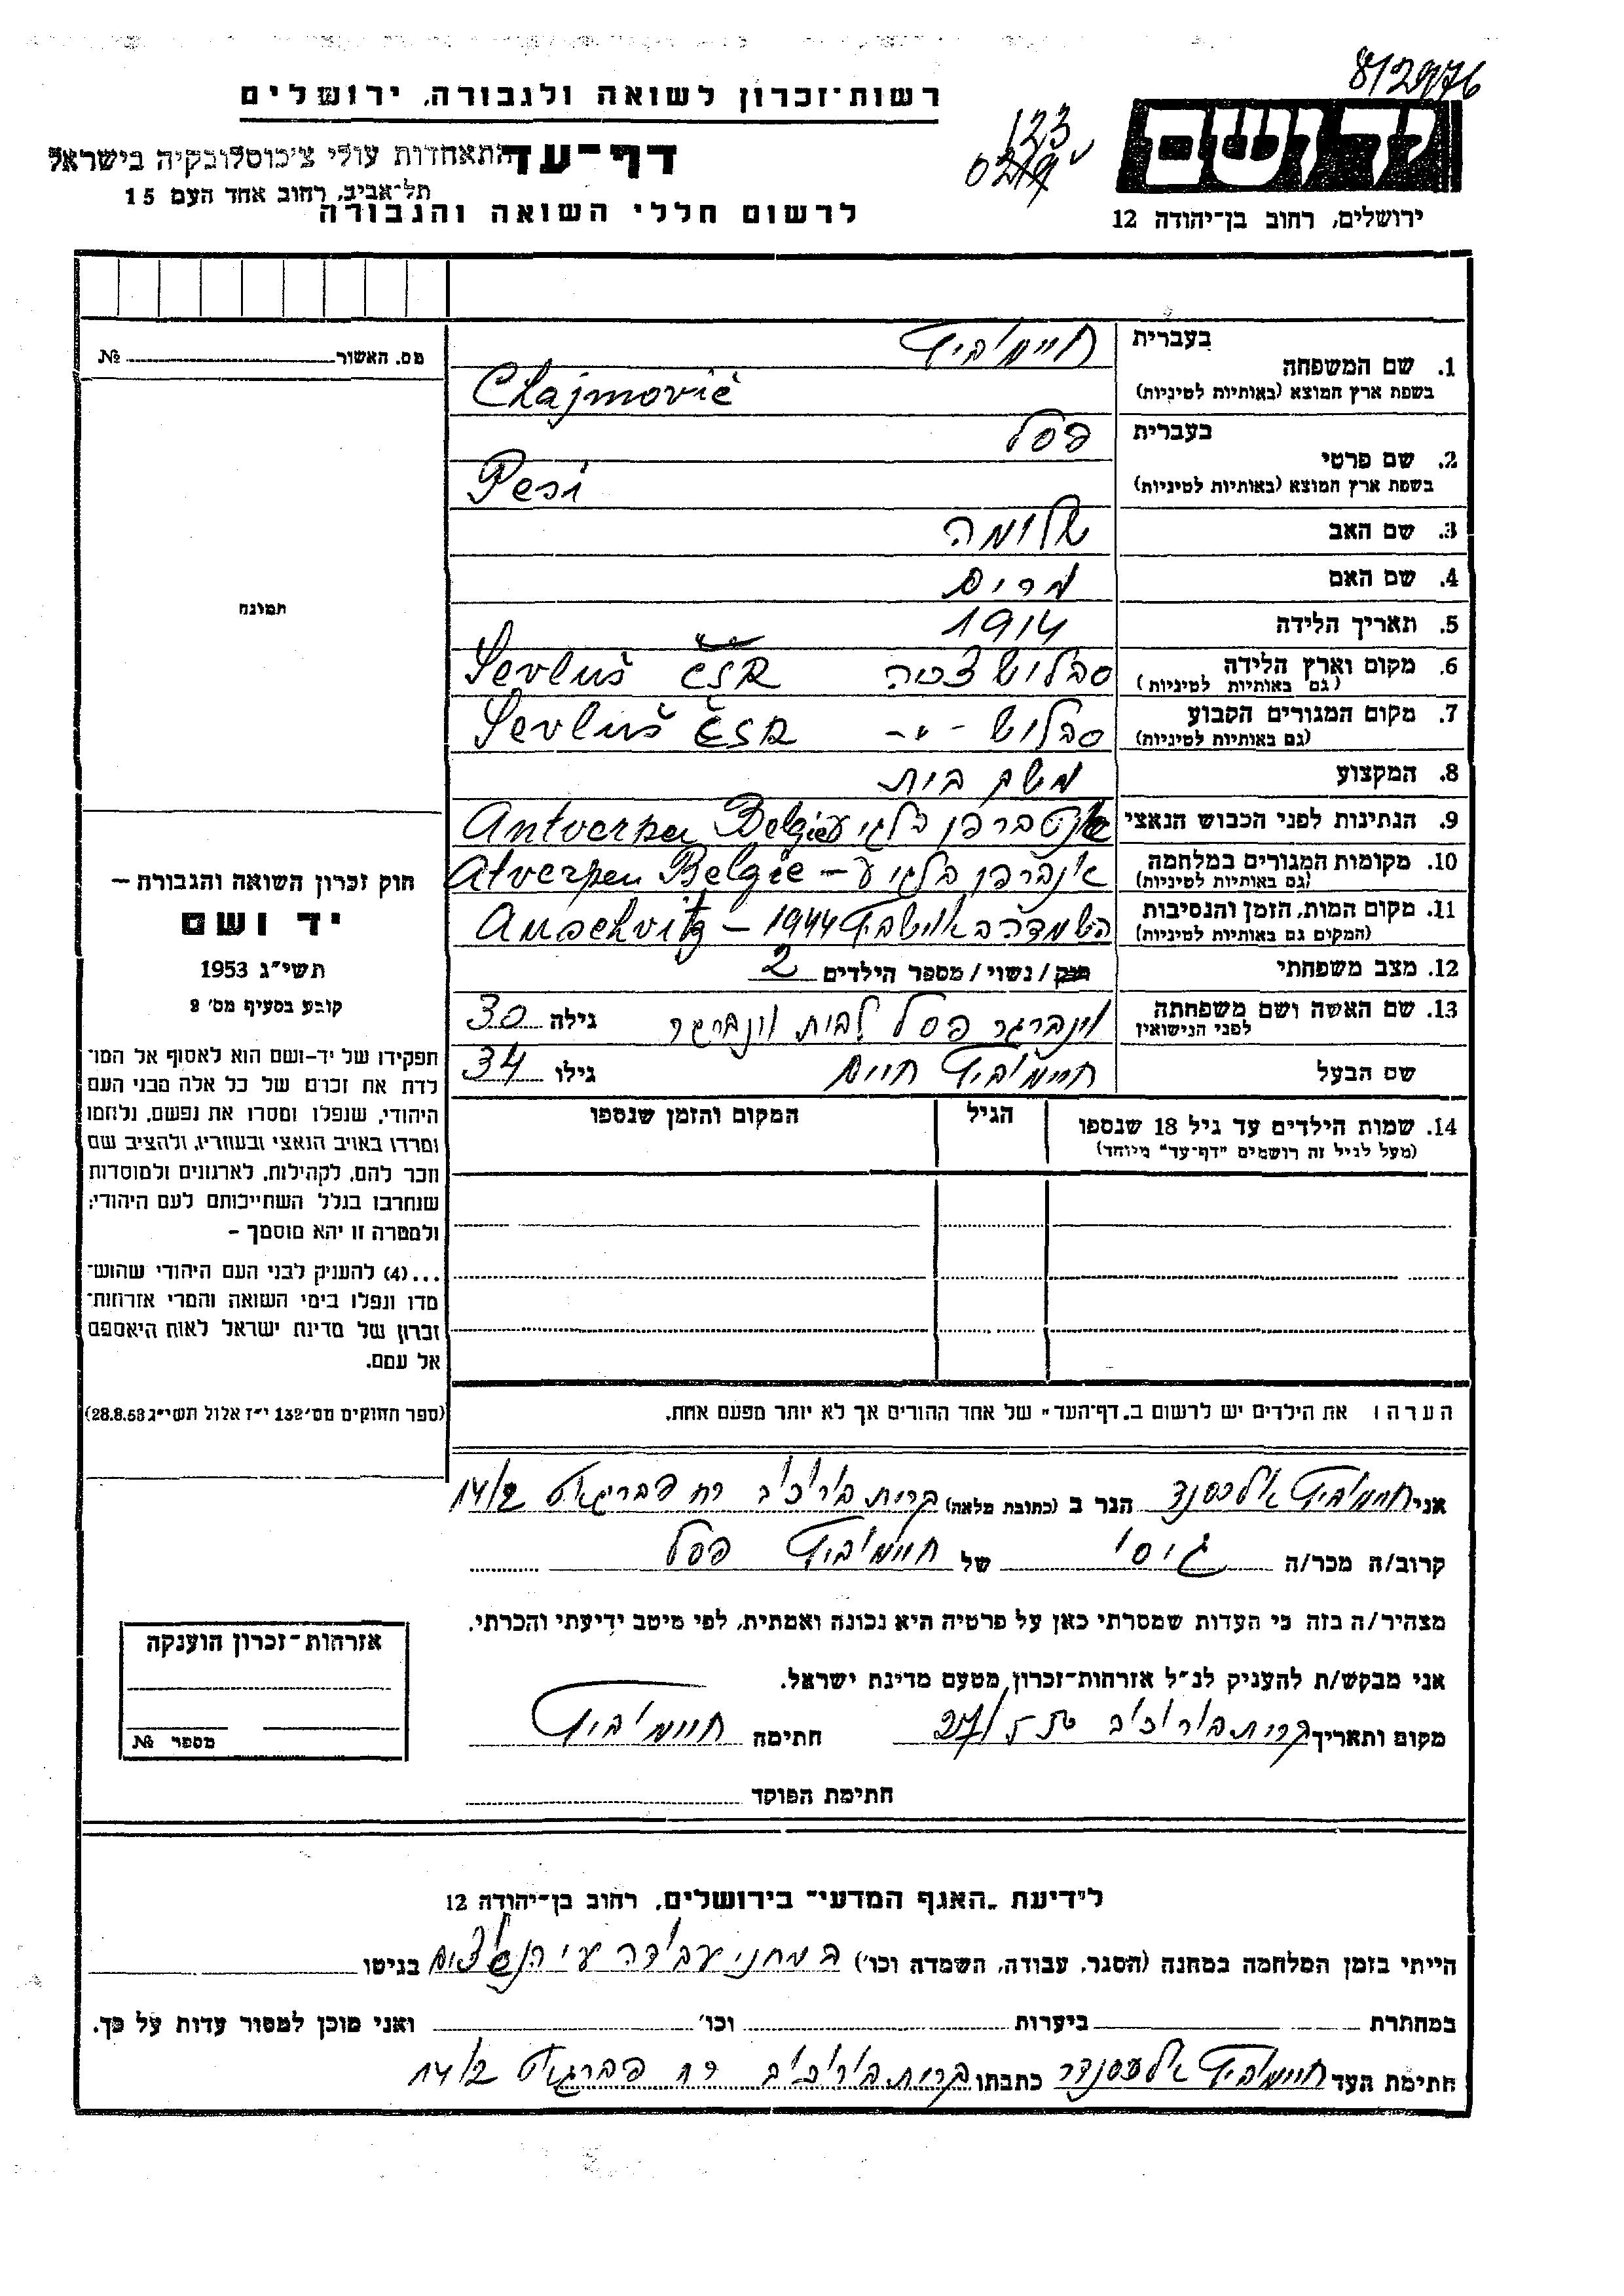 812976
רשות־זכרון לשואה ולגבורה, ירושלים
יד ושם
123
דף־עד
התאחדות עולי צ'כוסלובקיה בישראל
תל־אביב, רחוב אחד העם 15
לרשום חללי השואה והגבורה
ירושלים, רחוב בן־יהודה 12
מס. האשור № 
בעברית חיימוביץ
1. שם המשפחה
בשפת ארץ המוצא (באותיות לטיניות) Chajmovič
בעברית פסל
2. שם פרטי
בשפת ארץ המוצא (באותיות לטיניות) Pesi
3. שם האב שלומה
4. שם האם מרים
תמונה
5. תאריך הלידה 1914
6. מקום וארץ הלידה סבלוש צ'כיה Sevluš ČSR
(גם באותיות לטיניות)
7. מקום המגורים הקבוע סבלוש -"- Sevluš ČSR
(גם באותיות לטיניות)
8. המקצוע משק בית
9. הנתינות לפני הכבוש הנאצי אנטברפן בלגיע Antverpen Belgie
10. מקומות המגורים במלחמה אנברפן בלגיע – Atverpen Belgie
(גם באותיות לטיניות)
11. מקום המות, הזמן והנסיבות השמדה באושביץ 1944 – Auschvitz
(המקום גם באותיות לטיניות)
12. מצב משפחתי רווק / נשוי / מספר הילדים 2
13. שם האשה ושם משפחתה וינברגר פסל לבית ונברגר גילה 30
לפני הנישואין
שם הבעל חיימוביץ חיים גילו 34
14. שמות הילדים עד גיל 18 שנספו הגיל המקום והזמן שנספו
(מעל לגיל זה רושמים "דף־עד" מיוחד)
חוק זכרון השואה והגבורה –
יד ושם
תשי"ג 1953
קובע בסעיף מס' 2
תפקידו של יד־ושם הוא לאסוף אל המו־
לדת את זכרם של כל אלה מבני העם
היהודי, שנפלו ומסרו את נפשם, נלחמו
ומרדו באויב הנאצי ובעוזריו, ולהציב שם
וזכר להם, לקהילות, לארגונים ולמוסדות
שנחרבו בגלל השתייכותם לעם היהודי;
ולמטרה זו יהא מוסמך –
...(4) להעניק לבני העם היהודי שהוש־
מדו ונפלו בימי השואה והמרי אזרחות־
זכרון של מדינת ישראל לאות היאספם
אל עמם.
(ספר החוקים מס' 132 י"ז אלול תשי"ג 28.8.53)
הערה: את הילדים יש לרשום ב"דף־העד" של אחד ההורים אך לא יותר מפעם אחת.
אני חיימוביץ אלכסנד הגר ב (כתובת מלאה) קרית ביאליק רח 14/2
קרוב/ה מכר/ה גיסי של חיימוביץ פסל
מצהיר/ה בזה כי העדות שמסרתי כאן על פרטיה היא נכונה ואמתית, לפי מיטב ידיעתי והכרתי.
אני מבקש/ת להעניק לנ"ל אזרחות־זכרון מטעם מדינת ישראל.
מקום ותאריך חתימה חיימוביץ
חתימת הפוקד
אזרחות־זכרון הוענקה
מספר №
לידיעת "האגף המדעי" בירושלים, רחוב בן־יהודה 12
הייתי בזמן המלחמה במחנה (הסגר, עבודה, השמדה וכו') במחני עבודה בגיטו
במחתרת ביערות וכו' ואני מוכן למסור עדות על כך.
חתימת העד חיימוביץ אלכסנדר כתבתו 14/2